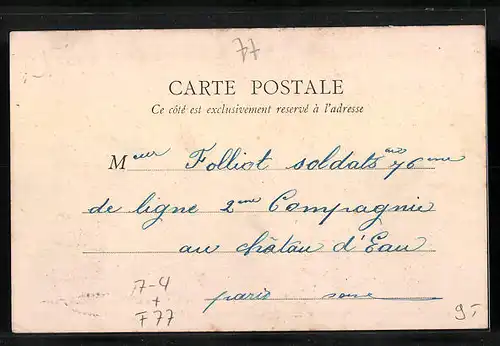 77
CARTE POSTALE
Ce côté est exclusivement reservé à l'adresse
Meur Folliot soldats au 76eme
de ligne 2eme Compagnie
au châtau d'Eau
paris
A-4
+
F77
9.-